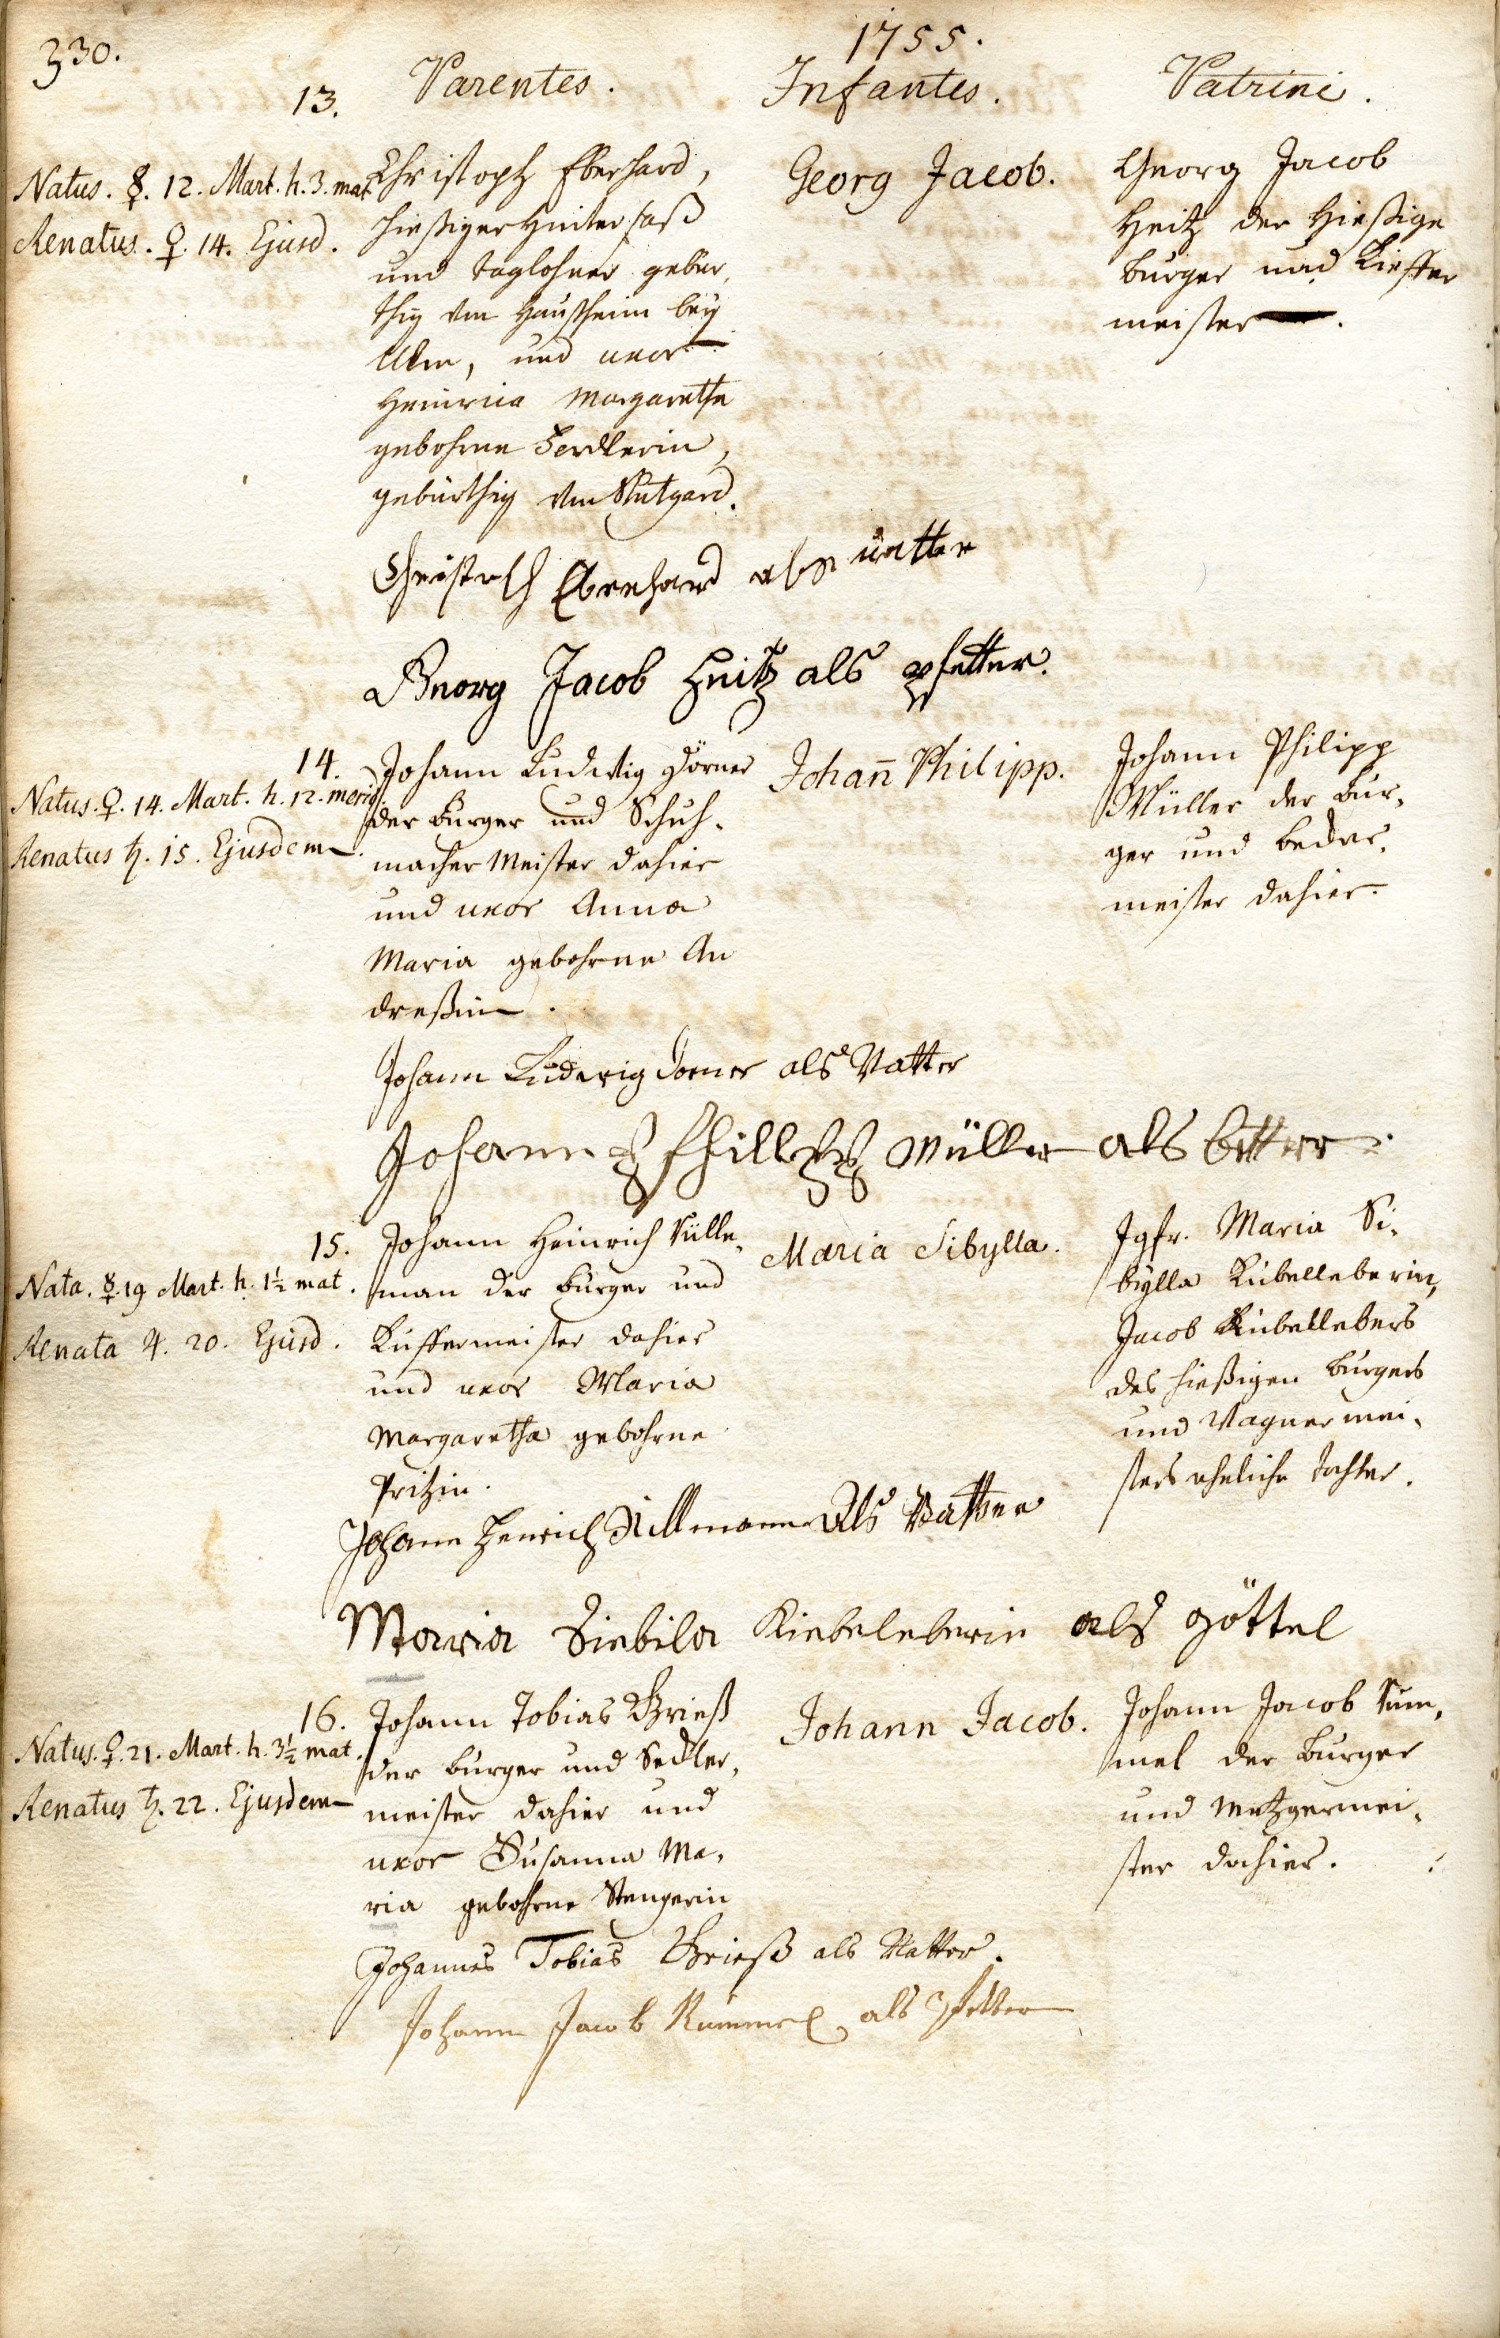 330.
1755.
Parentes. Infantes. Patrini.
13.
Natus. ☿. 12. Mart. h. 3. mat.
Renatus. ♀. 14. Ejusd.
Christoph Eberhard,
hießiger Hintersaß
und taglohner gebür,
thig von Haußheim bey
Ulm, und uxor
Heinrica Margaretha
gebohrne
gebürthig von Stutgard.
Georg Jacob.
Georg Jacob
Heitz der Hießige
burger und Kieffer
meister.
Christoph Eberhard als vatter
Georg Jacob Heitz als pfetter.
14.
Natus. ♀. 14. Mart. h. 12. merid.
Renatus ♄. 15. Ejusdem.
Johann Ludwig Dörner
der burger und Schuh-
macher Meister dahier
und uxor Anna
Maria gebohrne An
dreßin.
Johann̄ Philipp.
Johann Philipp
Müller der bur-
ger und becker-
meister dahier.
Johann Ludwig Dorner als Vatter
Johann Phillipp Müller als
15.
Nata. ☿. 19 Mart. h. 1½ mat.
Renata ♃. 20. Ejusd.
Johann Heinrich Külle-
man der burger und
Kuffermeister dahier
und uxor Maria
Margaretha gebohrne
Pritzin.
Maria Sibylla.
Jgfr. Maria Si-
bylla Kübelleberin,
Jacob Kübellebers
des hießigen burgers
und Wagnermei-
sters eheliche tochter.
Johann Henrich als Vatter
Maria Siebila Kiebeleberin als göttel
16.
Natus. ♀. 21. Mart. h. 3½ mat.
Renatus ♄. 22. Ejusdem
Johann Tobias Grieß
der burger und Sedler-
meister dahier und
uxor Susanna Ma-
ria gebohrne Stengerin
Johann Jacob.
Johann Jacob Rum-
mel der burger
und Metzgermei-
ster dahier.
Johannes Tobias Grieß als Vatter.
Johann Jacob Rummel als Pfetter